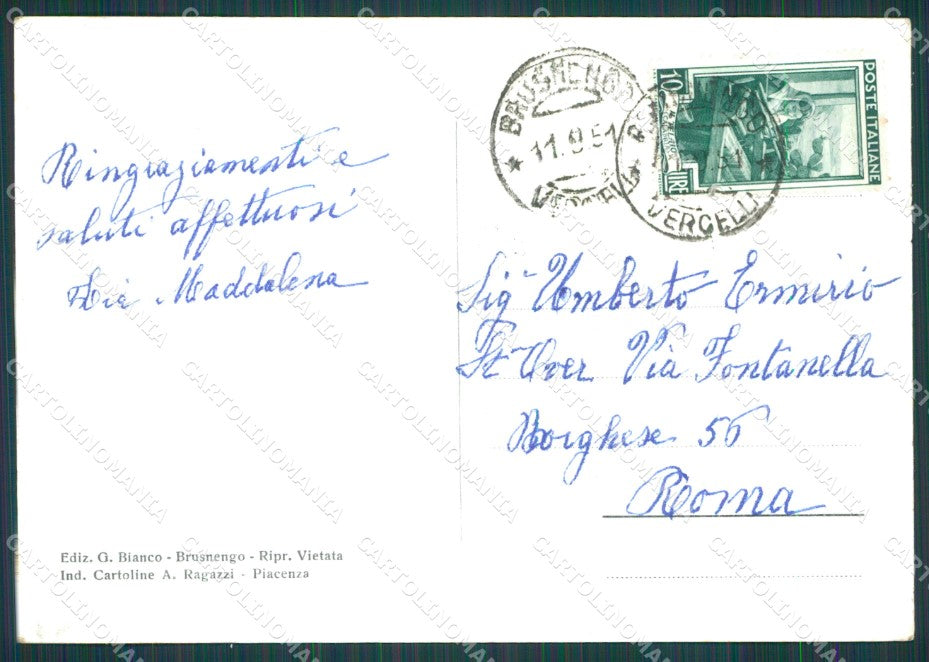 Ringraziamenti e
saluti affettuosi
Zia Maddalena
BRUSNENGO
11.9.51
VERCELLI
VERCELLI
10
LIRE
POSTE ITALIANE
Sig Umberto Ermirio
Via Fontanella
Borghese 56
Roma
Ediz. G. Bianco - Brusnengo - Ripr. Vietata
Ind. Cartoline A. Ragazzi - Piacenza
CARTOLINOMANIA